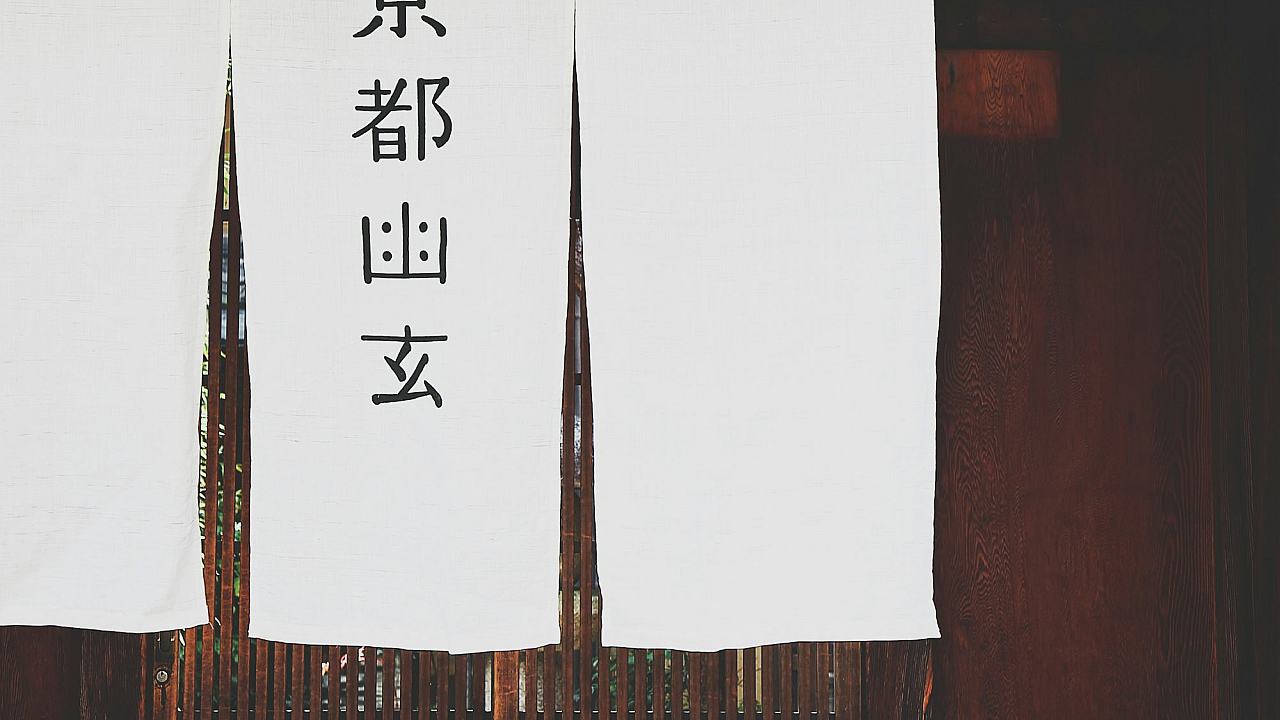 京都幽玄